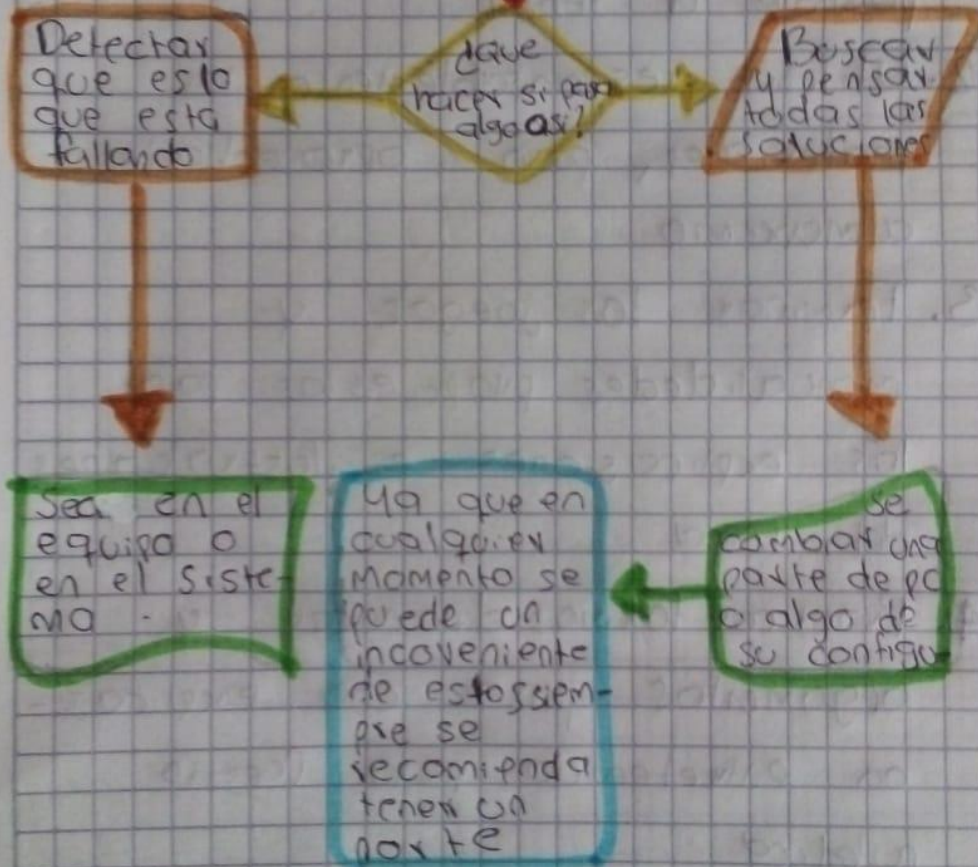 Detectar
que eslo
que está
fallando
¿que
hacer si pasa
algo así?
Buscar
y pensar
todas las
soluciones
Sea en el
equipo o
en el siste-
ma.
Ya que en
cualquier
momento se
puede un
incoveniente
de estossiem-
pre se
recomienda
tener un
porte
se
cambiar una
parte de pc
o algo de
su configu-